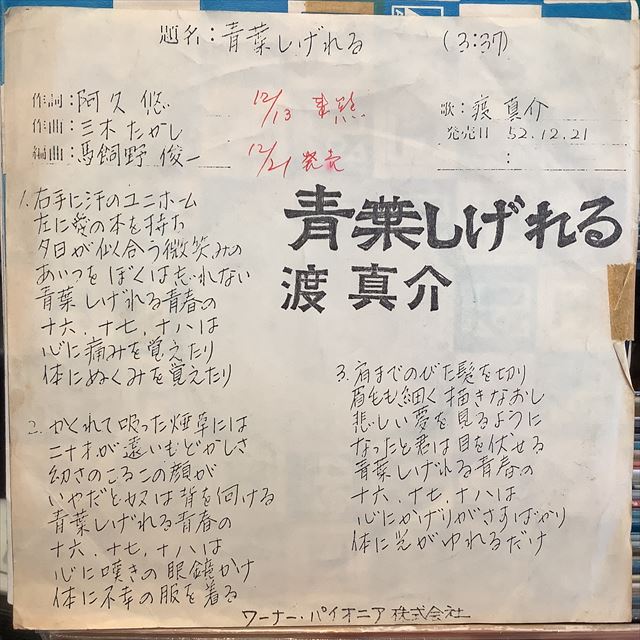 題名:青葉しげれる (3:37)
作詞:阿久 悠
作曲:三木たかし
編曲:馬飼野 俊一
12/13
12/21 発売
歌:渡 真介
発売日 52.12.21
:
青葉しげれる
渡 真介
1. 右手に汗のユニホーム
左に愛の本を持ち
夕日が似合う微笑みの
あいつをぼくは忘れない
青葉しげれる青春の
十六、十七、十八は
心に痛みを覚えたり
体にぬくみを覚えたり
2. かくれて吸った煙草には
二十才が遠いもどかしさ
幼さのこるこの顔が
いやだと奴は背を向ける
青葉しげれる青春の
十六、十七、十八は
心に嘆きの眼鏡かけ
体に不幸の服を着る
3. 肩までのびた髪を切り
眉毛も細く描きなおし
悲しい夢を見るように
なったと君は目を伏せる
青葉しげれる青春の
十六、十七、十八は
心にかげりがさすばかり
体に炎がゆれるだけ
ワーナー・パイオニア株式会社